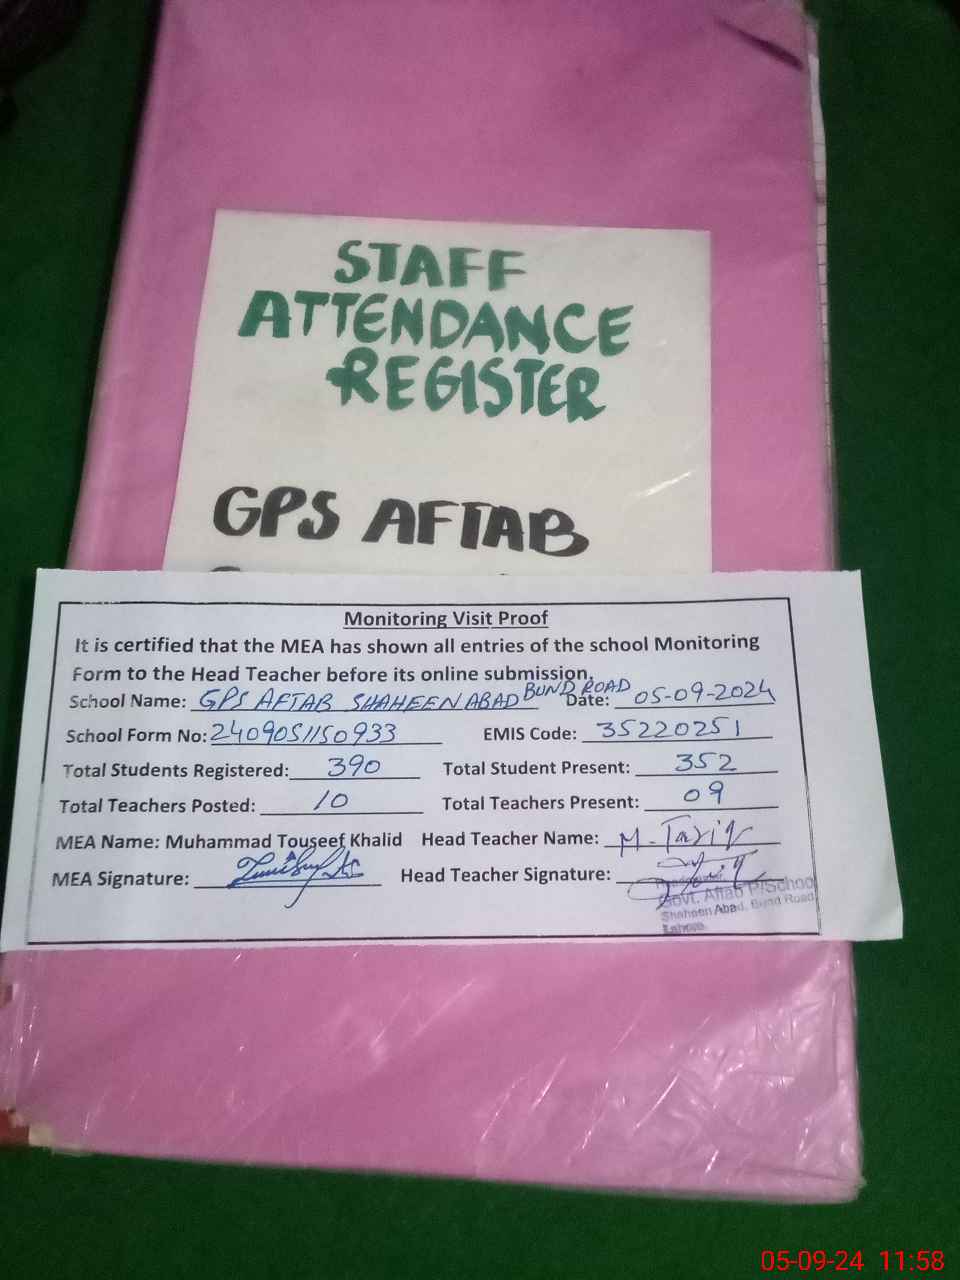 STAFF
ATTENDANCE
REGISTER
GPS AFTAB
Monitoring Visit Proof
It is certified that the MEA has shown all entries of the school Monitoring
Form to the Head Teacher before its online submission.
School Name: GPS AFTAB SHAHEEN ABAD BUND ROAD Date: 05-09-2024
School Form No: 2409051150933 EMIS Code: 35220251
Total Students Registered: 390 Total Student Present: 352
Total Teachers Posted: 10 Total Teachers Present: 09
MEA Name: Muhammad Touseef Khalid Head Teacher Name: M. Tariq
MEA Signature: Head Teacher Signature:
Govt. Aftab P/School
Shaheen Abad, Bund Road,
Lahore.
05-09-24 11:58